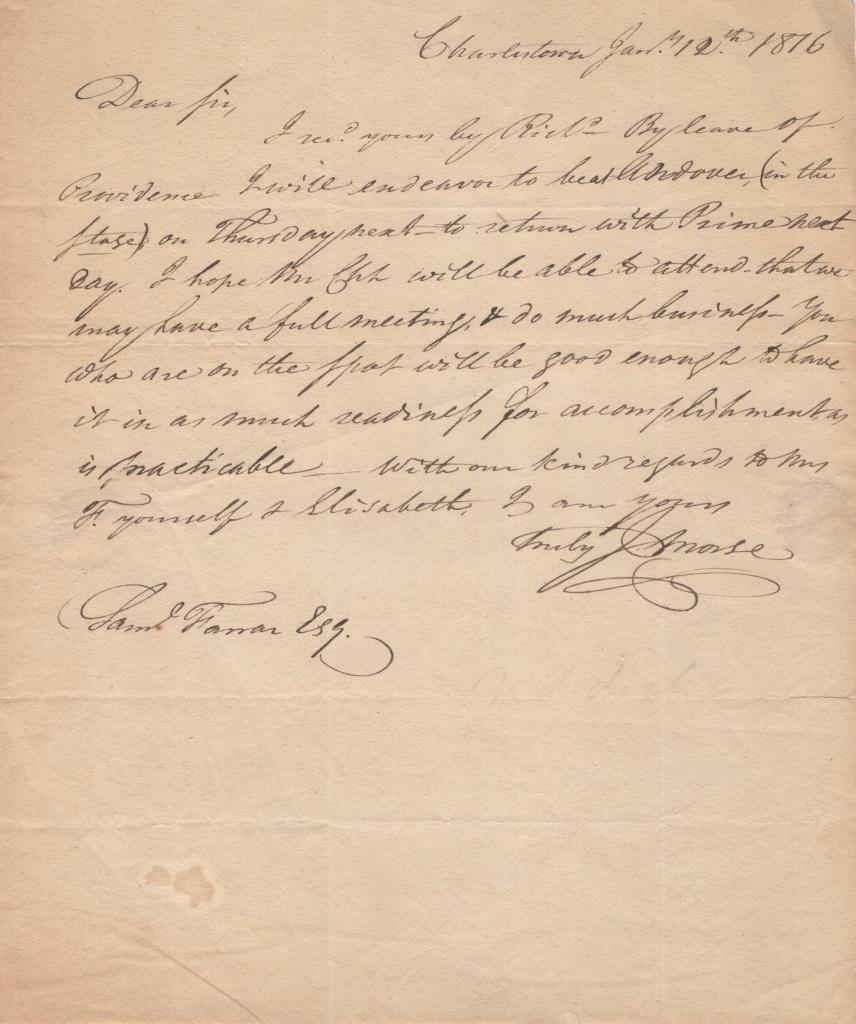 Charlestown Jany. 12th. 1816
Dear Sir,
I recd. yours by Richd. By leave of
Providence I will endeavor to be at Andover, (in the
stage) on Thursday next - to return with Prime next
Day. I hope Mr will be able to attend - that we
may have a full meeting, & do much business - You
who are on the spot will be good enough to have
it in as much readiness for accomplishment as
is practicable - With our kind regards to Mrs
F. yourself & Elisabeth. I am yours
truly J. Morse
Saml Farrar Esq.